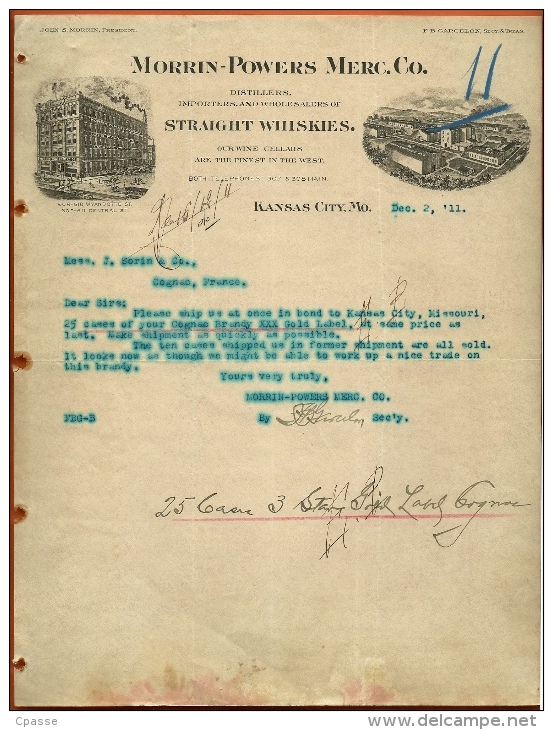 JOHN S. MORRIN, PRESIDENT.
F B GARCELON, SECY & TREAS.
MORRIN-POWERS MERC. CO.
11
DISTILLERS,
IMPORTERS, AND WHOLESALERS OF
STRAIGHT WHISKIES.
OUR WINE CELLARS
ARE THE FINEST IN THE WEST.
BOTH TELEPHONES
KANSAS CITY, MO.
Dec. 2, '11.
Mess. J. Sorin & Co.,
Cognac, France.
Dear Sirs:
Please ship us at once in bond to Kansas City, Missouri,
25 cases of your Cognac Brandy XXX Gold Label. At same price as
last. Make shipment as quickly as possible.
The ten cases shipped us in former shipment are all sold.
It looks now as though we might be able to work up a nice trade on
this brandy.
Yours very truly,
MORRIN-POWERS MERC. CO.
FBG-B
By FBGarcelon Sec'y.
25 Case 3 Star Gold Label Cognac
Cpasse
www.delcampe.net